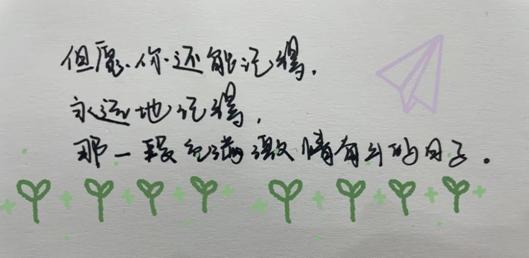 但愿你还能记得，
永远地记得，
那一段充满激情奋斗的日子。